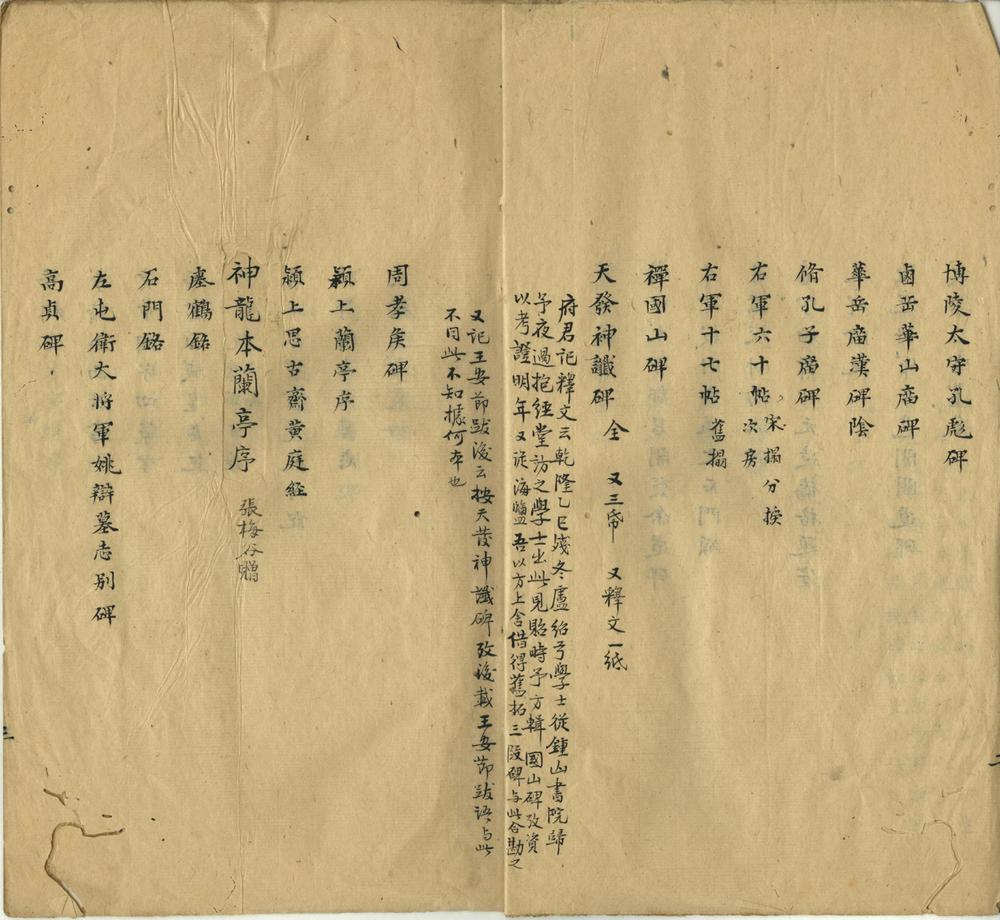 博陵太守孔彪碑
西岳華山廟碑
華岳廟漢碑陰
脩孔子廟碑
右軍六十帖 宋搨分揆
次房
右軍十七帖 舊搨
禪國山碑
天發神讖碑 全 又三帋 又釋文一紙
府君記釋文云乾隆乙巳殘冬盧紹弓學士從鍾山書院歸
予夜過抱經堂訪之學士出此見貽時予方輯國山碑攷資
以考證明年又從海鹽吾以方上舍借得舊拓三段碑与此合勘之
又記王安節跋後云按天發神讖碑攷後載王安節跋語与此
不同此不知據何本也
周孝矦碑
潁上蘭亭序
潁上思古齋黄庭経
神龍本蘭亭序 張梅谷贈
瘞鶴銘
石門銘
左屯衛大将軍姚辯墓志别碑
高貞碑
二
三